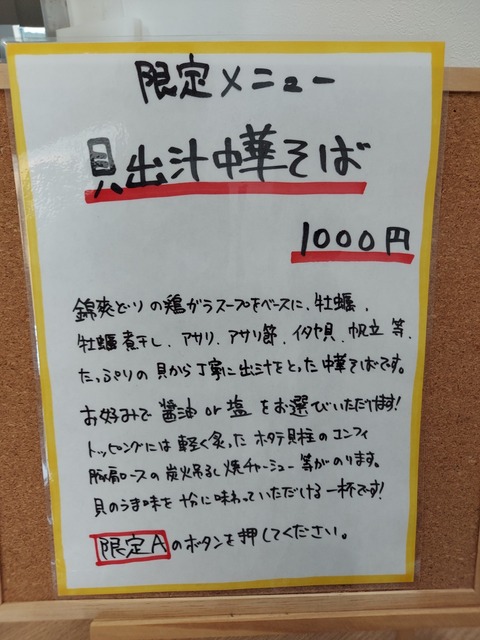 限定メニュー
貝出汁中華そば
1000円
錦爽どりの鶏がらスープをベースに、牡蠣、
牡蠣煮干し、アサリ、アサリ節、イタヤ貝、帆立 等、
たっぷりの貝から丁寧に出汁をとった中華そばです。
お好みで醤油or塩をお選びいただけます!
トッピングには軽く炙ったホタテ貝柱のコンフィ
豚肩ロースの炭火吊るし焼チャーシュー等がのります。
貝のうま味を十分に味わっていただける一杯です!
限定Aのボタンを押してください。